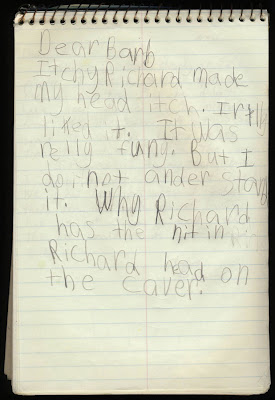 Dear Barb
Itchy Richard made
my head itch. I rtlly
liked it. It was
relly funy. But I
do not ander stand
it. Why Richard
has the nit in
Richard head on
the caver.